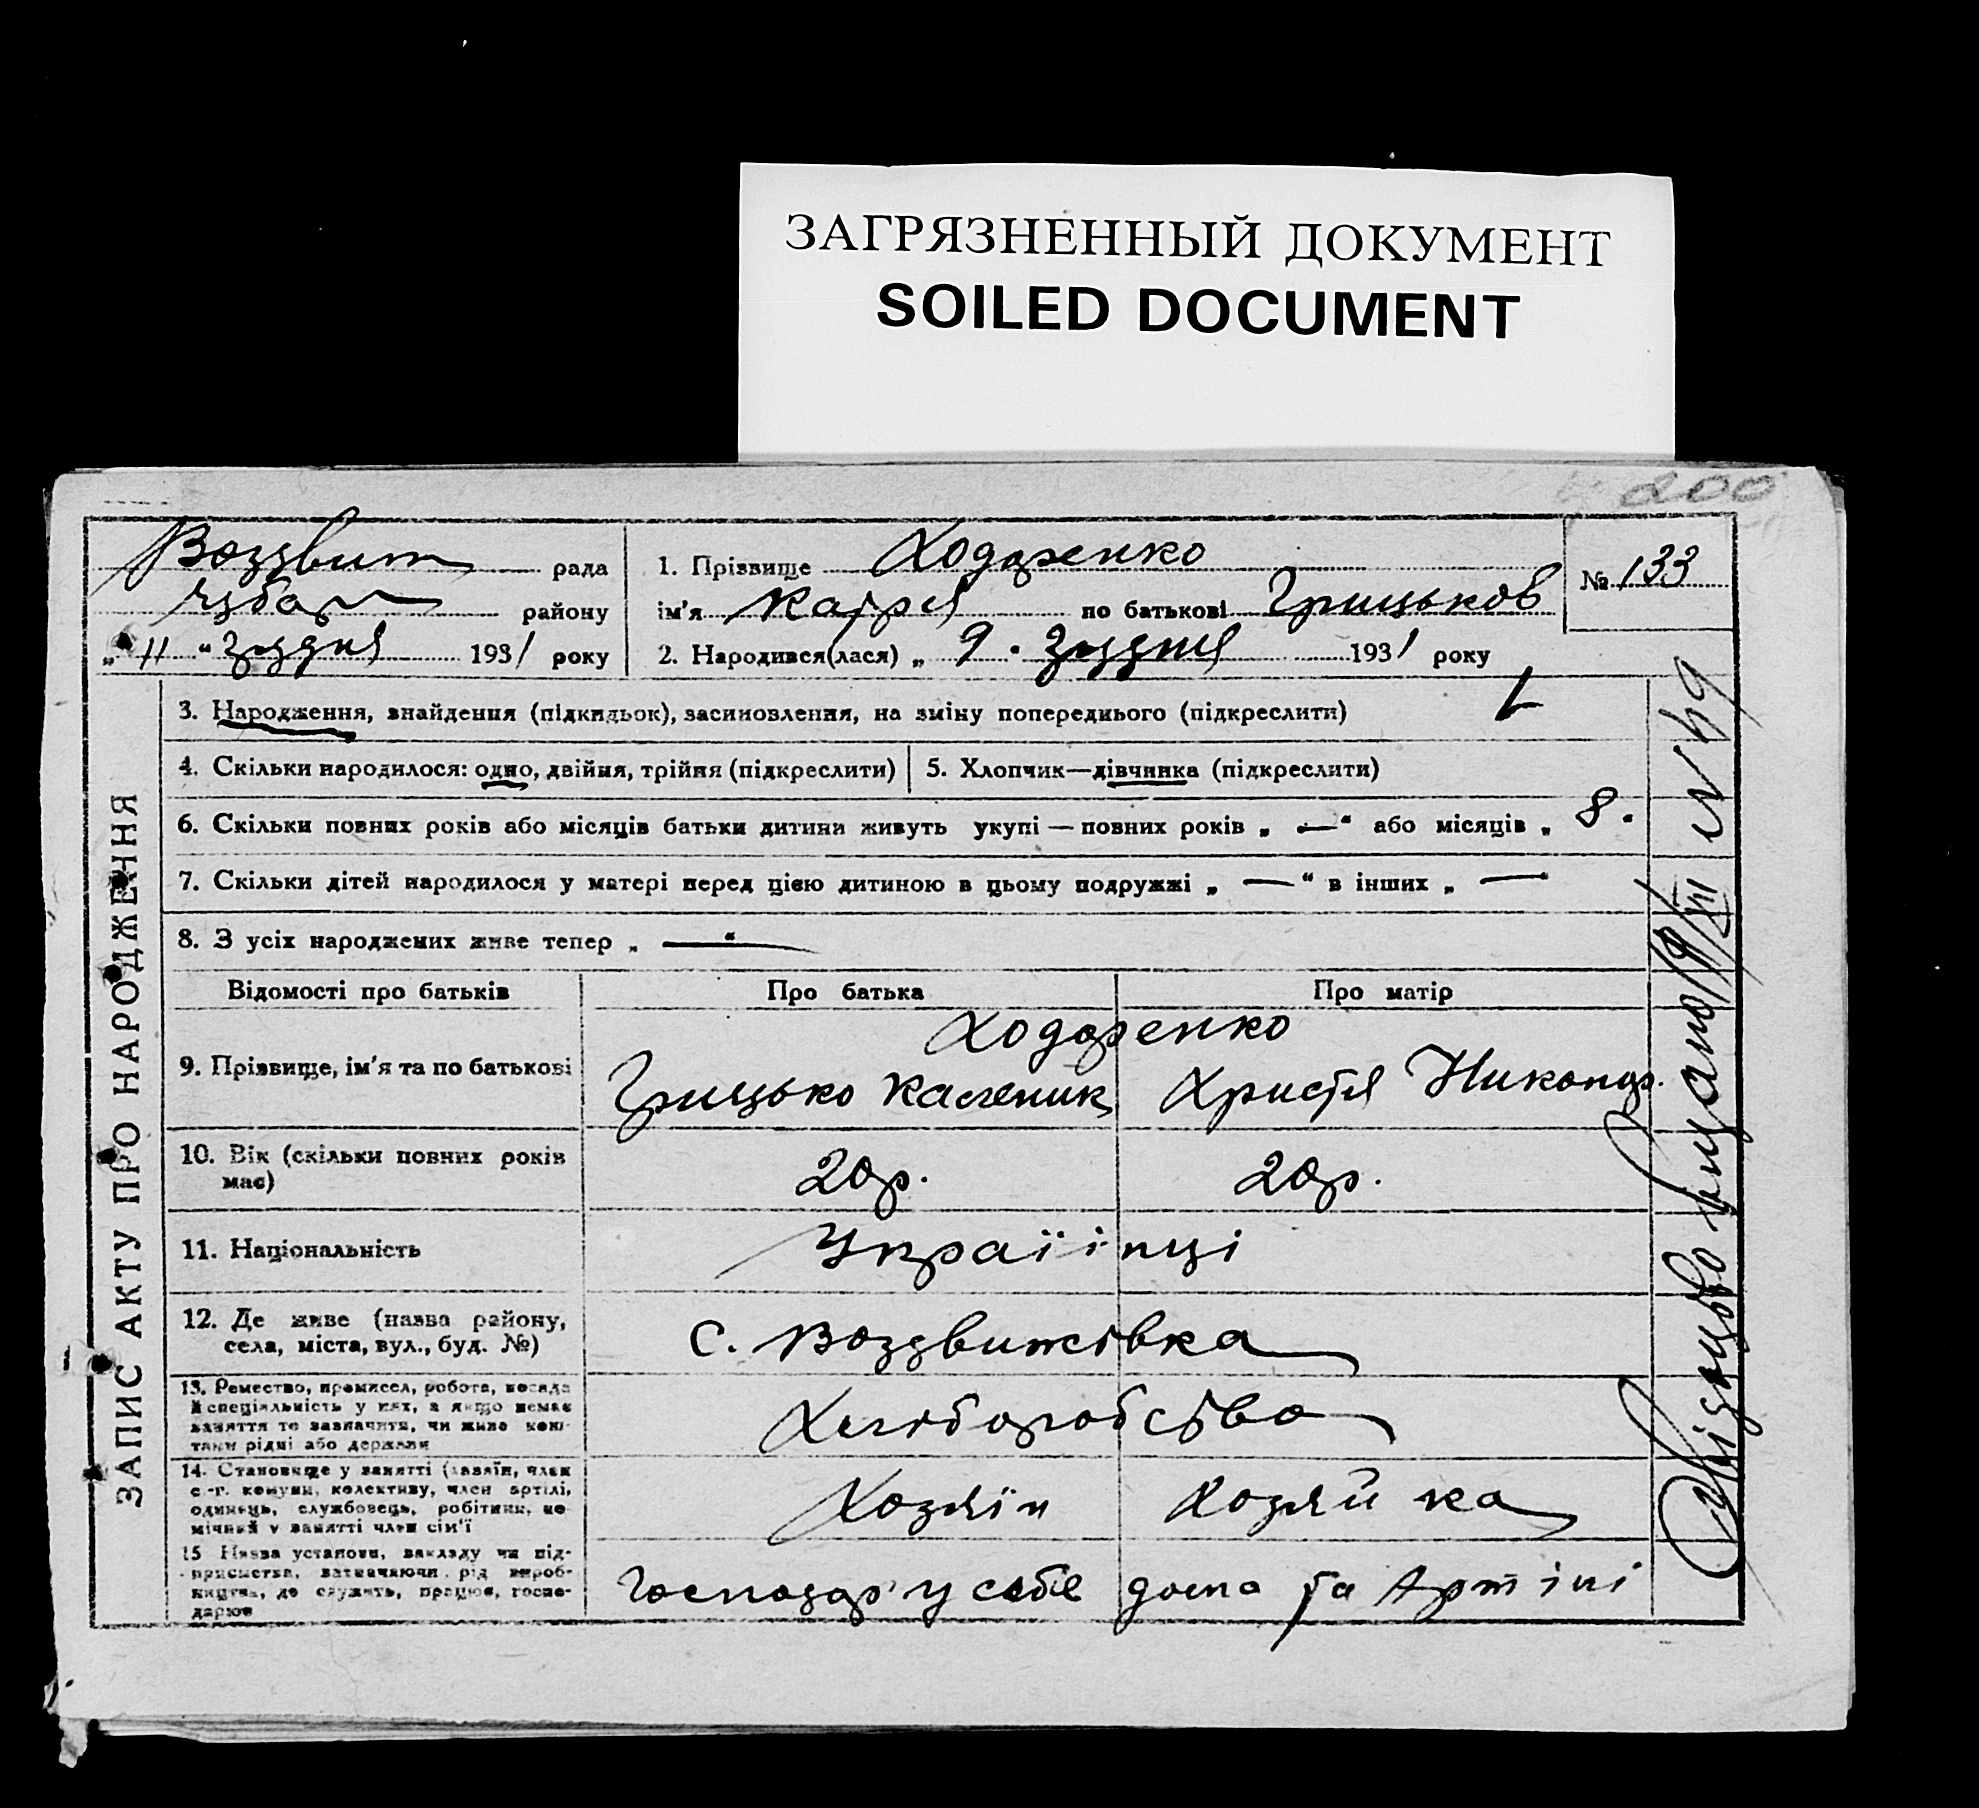 ЗАГРЯЗНЕННЫЙ ДОКУМЕНТ
SOILED DOCUMENT
200
Воздвиж рада
району
„11“ Грудня 1931 року
1. Прізвище Ходаренко
ім'я Катря по батькові Грицьков
2. Народився(лася) „9. Грудня 1931 року
№ 133
ЗАПИС АКТУ ПРО НАРОДЖЕННЯ
3. Народження, знайдення (підкидьок), засиновлення, на зміну попереднього (підкреслити)
4. Скільки народилося: одно, двійня, трійня (підкреслити)
5. Хлопчик—дівчинка (підкреслити)
6. Скільки повних років або місяців батьки дитини живуть укупі — повних років „ — “ або місяців „ 8.
7. Скільки дітей народилося у матері перед цією дитиною в цьому подружжі „ — “ в інших „ —
8. З усіх народжених живе тепер „ — “
Відомості про батьків
Про батька
Про матір
9. Прізвище, ім'я та по батькові
Ходаренко
Грицько Каленик
Христя Миканор.
10. Вік (скільки повних років
має)
20р.
20р.
11. Національність
Украіінці
12. Де живе (назва району,
села, міста, вул., буд. №)
С. Воздвижівка
13. Ремество, промисел, робота, посада
й спеціяльність у них, а якщо немає
заняття то зазначити, чи живе кош-
тами рідні або держави
Хліборобство
14. Становище у занятті (хазяїн, член
с.-г. комуни, колективу, член артілі,
одинець, службовець, робітник, по-
мічний у занятті член сім'ї
Хозяїн
Хозяйка
15 Назва установи, закладу чи під-
приємства, зазначаючи рід вироб-
ництва, де служить, працює, госпо-
дарює
Господар у себе дома та Артілі
Свідоцтво видано 19/XII № 49